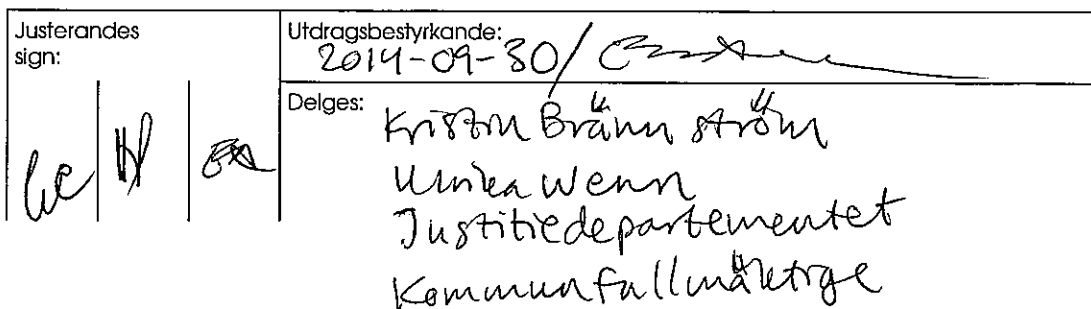 Justerandes
sign:
Utdragsbestyrkande:
2014-09-30/
Delges:
Kristin Brännström
Ulrika Wenn
Justitiedepartementet
Kommunfullmäktige